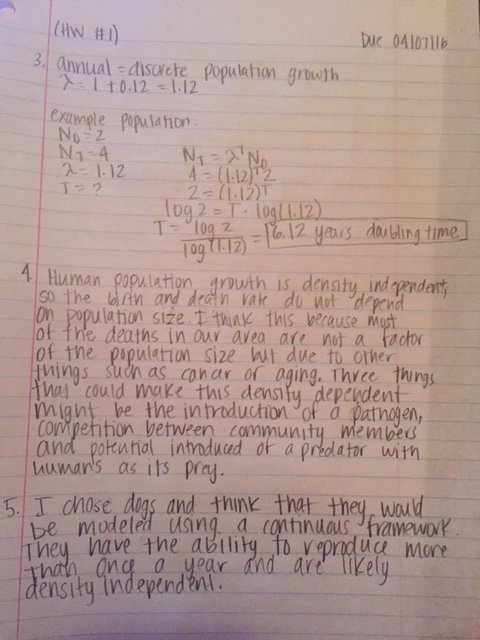 (HW #1)
Due 04/07/16
3. annual = discrete population growth
λ = 1 + 0.12 = 1.12
example population:
N₀ = 2
N_T = 4
λ = 1.12
T = ?
N_T = λᵀN₀
4 = (1.12)ᵀ2
2 = (1.12)ᵀ
log 2 = T · log(1.12)
T = log 2 / log(1.12) = 6.12 years doubling time
4 Human population growth is density independent,
so the birth and death rate do not depend
on population size. I think this because most
of the deaths in our area are not a factor
of the population size but due to other
things such as cancer or aging. Three things
that could make this density dependent
might be the introduction of a pathogen,
competition between community members
and potential introduced of a predator with
humans as its prey.
5. I chose dogs and think that they would
be modeled using a continuous framework.
They have the ability to reproduce more
than once a year and are likely
density independent.